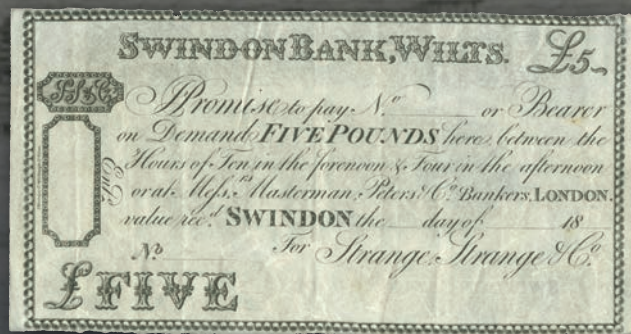 SWINDON BANK, WILTS. £5
I Promise to pay No or Bearer
on Demand FIVE POUNDS here, between the
Hours of Ten in the forenoon & Four in the afternoon
or at Messrs Masterman, Peters & Co Bankers, LONDON.
value recd SWINDON the day of 18
No For Strange, Strange & Co
£ FIVE
Entd